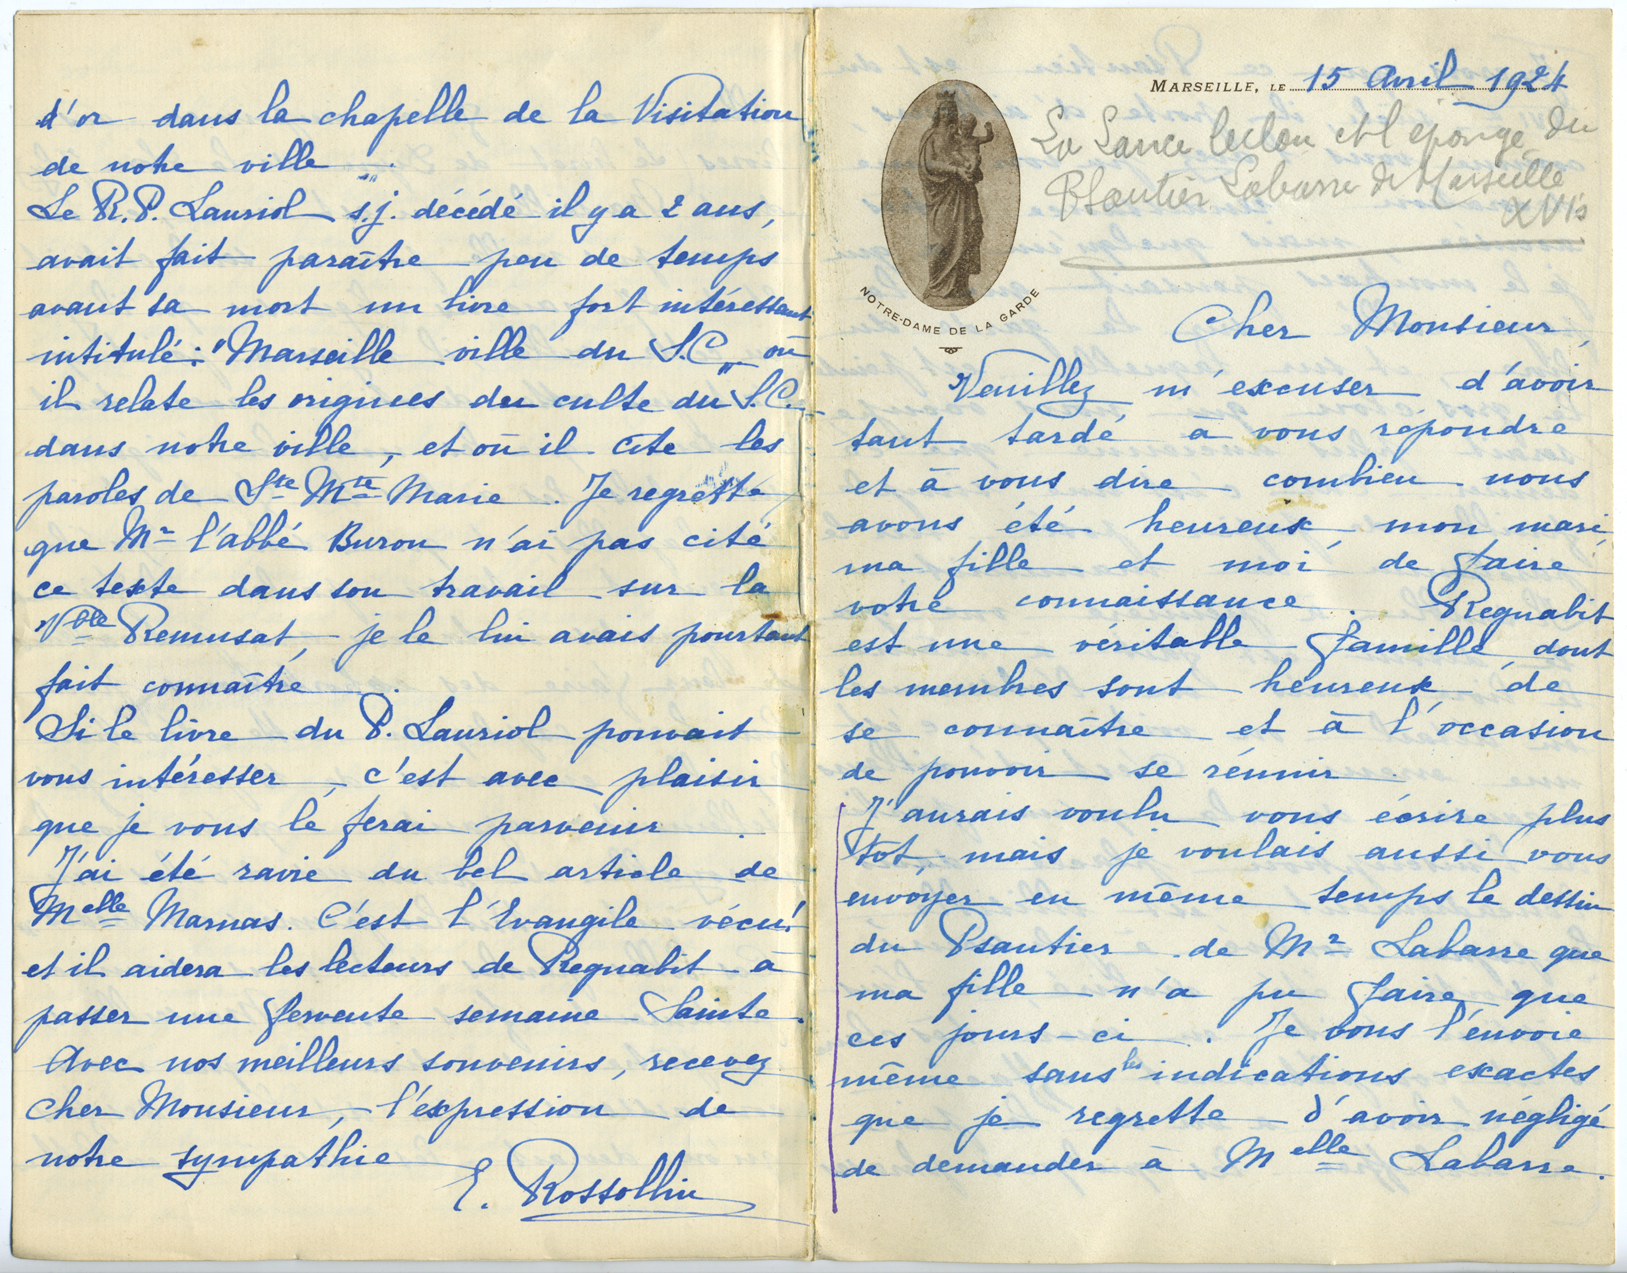 MARSEILLE, LE 15 Avril 1924
La Lance le clou et l'éponge du
Psautier Labarre de Marseille
XVIs
NOTRE-DAME DE LA GARDE
Cher Monsieur,
Veuillez m'excuser d'avoir
tant tardé à vous répondre
et à vous dire combien nous
avons été heureux, mon mari,
ma fille et moi de faire
votre connaissance. Regnabit
est une véritable famille, dont
les membres sont heureux de
se connaître et à l'occasion
de pouvoir se réunir.
J'aurais voulu vous écrire plus
tôt, mais je voulais aussi vous
envoyer en même temps le dessin
du Psautier de Mr Labarre que
ma fille n'a pu faire que
ces jours-ci. Je vous l'envoie
même sans les indications exactes
que je regrette d'avoir négligé
de demander à Melle Labarre.
d'or dans la chapelle de la Visitation
de notre ville".
Le R.P. Lauriol s.j. décédé il y a 2 ans,
avait fait paraître peu de temps
avant sa mort un livre fort intéressant
intitulé: "Marseille ville du S.C" où
il relate les origines du culte du S.C.
dans notre ville, et où il cite les
paroles de Ste Mte Marie. Je regrette
que Mr l'abbé Buron n'ai pas cité
ce texte dans son travail sur la
Vble Remusat, je le lui avais pourtant
fait connaître.
Si le livre du P. Lauriol pouvait
vous intéresser, c'est avec plaisir
que je vous le ferai parvenir.
J'ai été ravie du bel article de
Melle Marnas. C'est l'Evangile vécu!
et il aidera les lecteurs de Regnabit à
passer une fervente semaine Sainte.
Avec nos meilleurs souvenirs, recevez
Cher Monsieur, l'expression de
notre sympathie
E. Rossollin